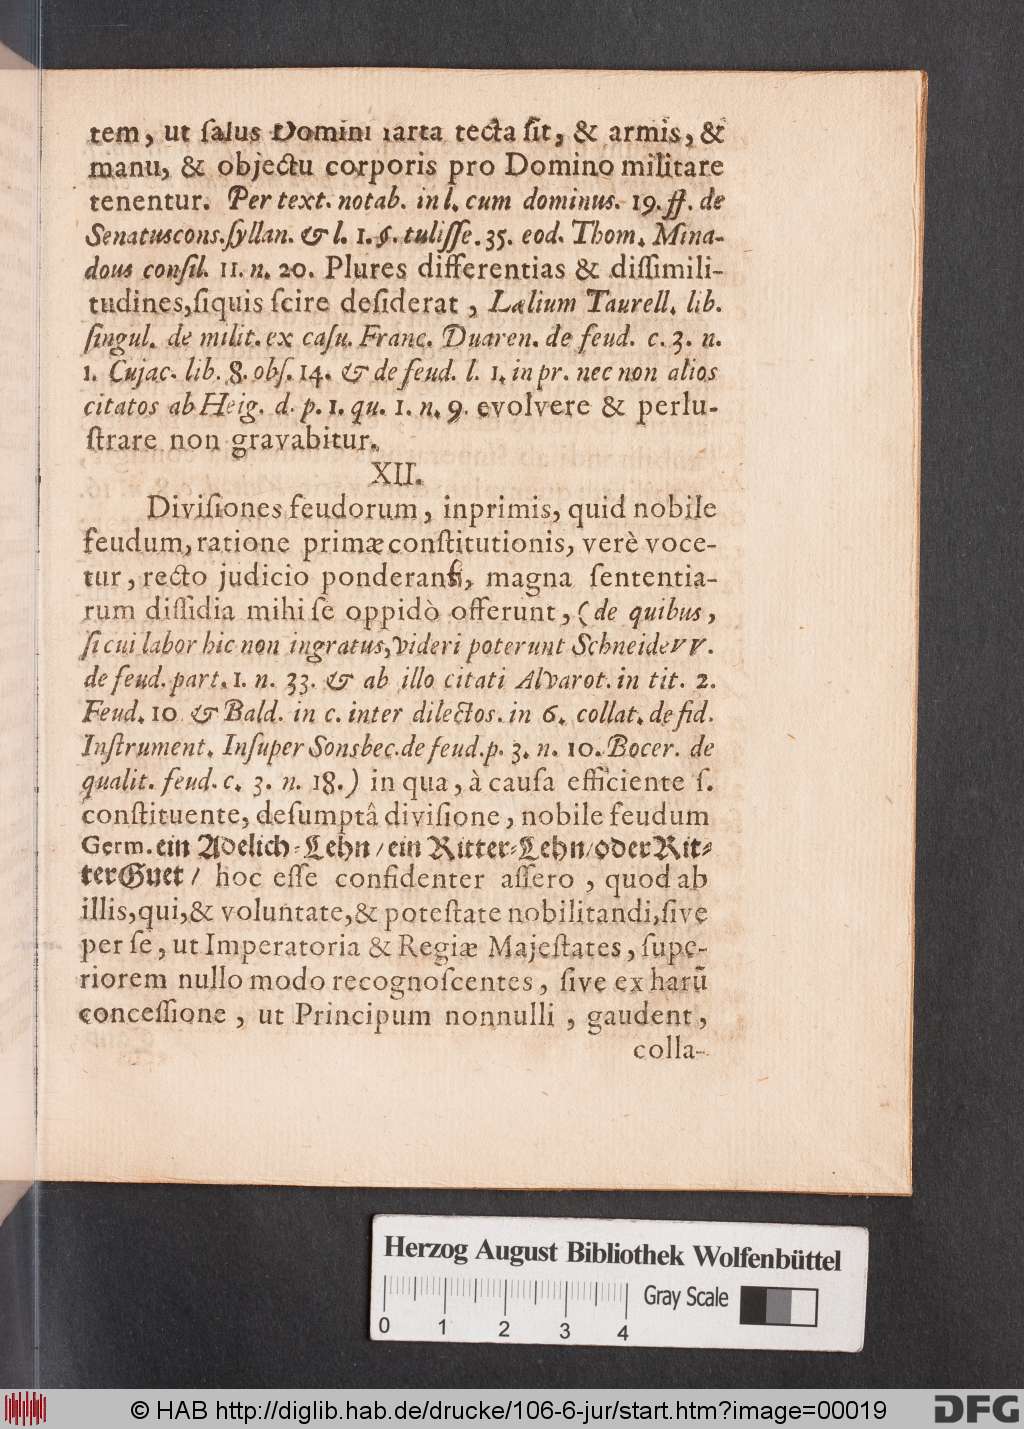 tem, ut ſalus Domini ſarta tecta ſit, & armis, &
manu, & objectu corporis pro Domino militare
tenentur. Per text. notab. in l. cum dominus. 19. ff. de
Senatuscons. ſyllan. & l. 1. §. tuliſſe. 35. eod. Thom. Mina-
dous conſil. 11. n. 20. Plures differentias & diſſimili-
tudines, ſiquis ſcire deſiderat, Lælium Taurell. lib.
ſingul. de milit. ex caſu. Franc. Duaren. de feud. c. 3. n.
1. Cujac. lib. 8. obſ. 14. & de feud. l. 1. in pr. nec non alios
citatos ab Heig. d. p. 1. qu. 1. n. 9. evolvere & perlu-
ſtrare non gravabitur.
XII.
Diviſiones feudorum, inprimis, quid nobile
feudum, ratione primæ conſtitutionis, verè voce-
tur, recto judicio ponderanti, magna ſententia-
rum diſſidia mihi ſe oppidò offerunt, (de quibus,
ſi cui labor hic non ingratus, videri poterunt Schneidevv.
de feud. part. 1. n. 33. & ab illo citati Alvarot. in tit. 2.
Feud. 10 & Bald. in c. inter dilectos. in 6. collat. de fid.
Inſtrument. Inſuper Sonsbec. de feud. p. 3. n. 10. Bocer. de
qualit. feud. c. 3. n. 18.) in qua, à cauſa efficiente ſ.
conſtituente, deſumptâ diviſione, nobile feudum
Germ. ein Adelich-Lehn / ein Ritter-Lehn / oder Rit-
ter Guet / hoc eſſe confidenter aſſero, quod ab
illis, qui, & voluntate, & poteſtate nobilitandi, ſive
per ſe, ut Imperatoria & Regiæ Majeſtates, ſupe-
riorem nullo modo recognoſcentes, ſive ex harũ
conceſſione, ut Principum nonnulli, gaudent,
colla-
Herzog August Bibliothek Wolfenbüttel
0 1 2 3 4 Gray Scale
© HAB http://diglib.hab.de/drucke/106-6-jur/start.htm?image=00019
DFG